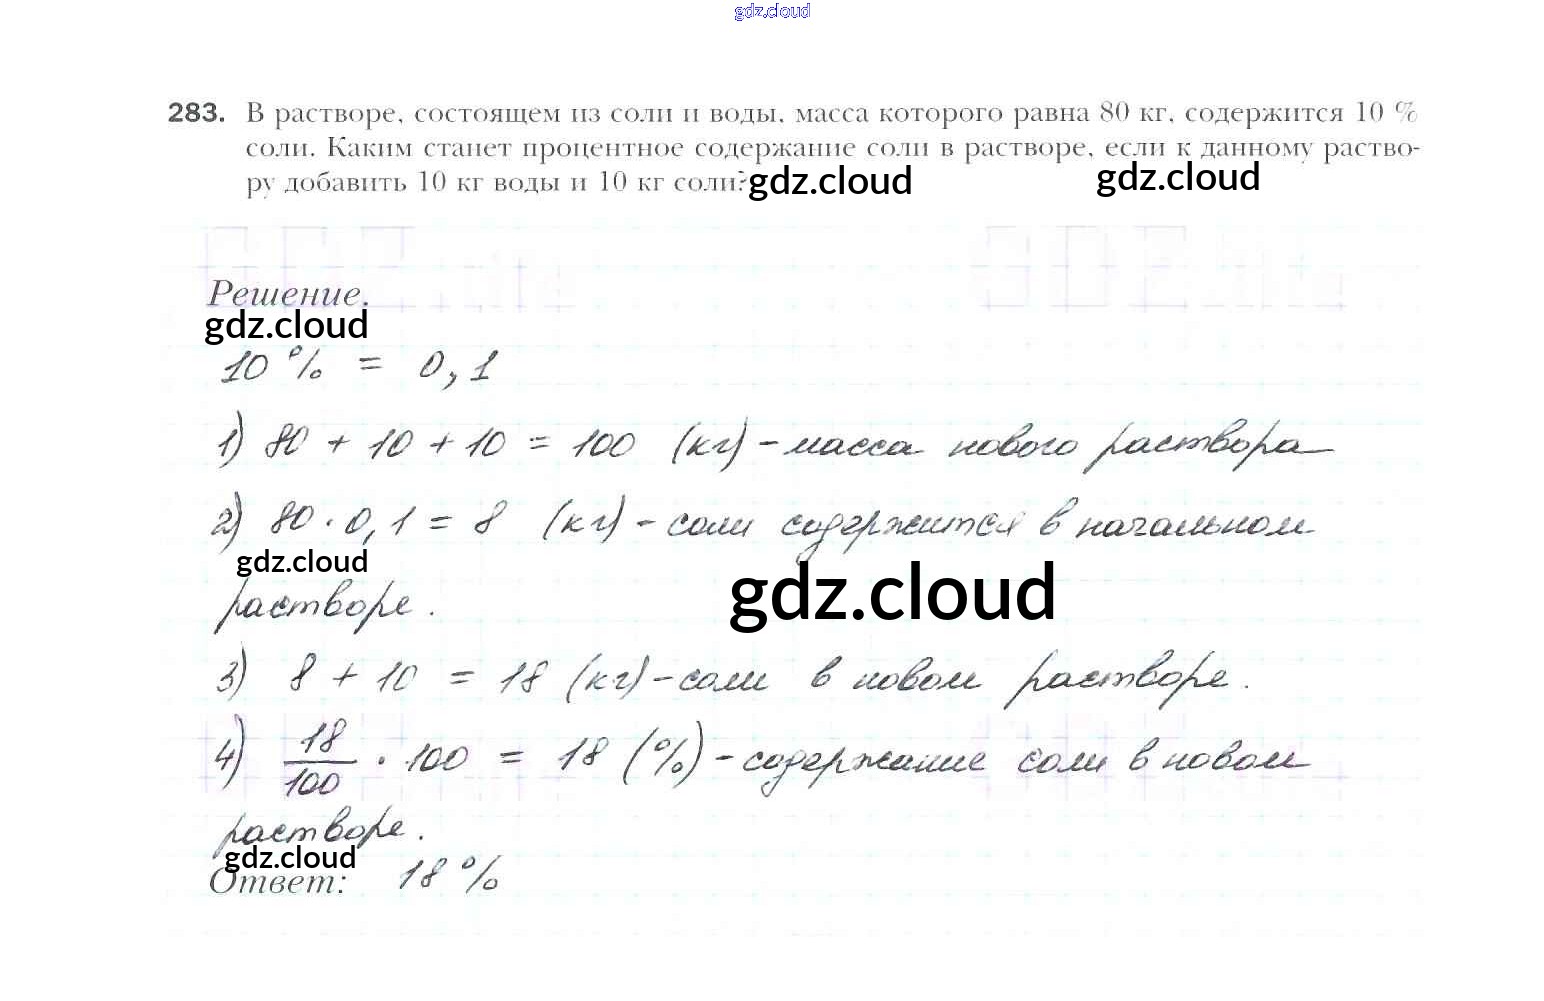 gdz.cloud
283. В растворе, состоящем из соли и воды, масса которого равна 80 кг, содержится 10 %
соли. Каким станет процентное содержание соли в растворе, если к данному раство-
ру добавить 10 кг воды и 10 кг соли? gdz.cloud gdz.cloud
Решение.
gdz.cloud
10 % = 0,1
1) 80 + 10 + 10 = 100 (кг) – масса нового раствора
2) 80 · 0,1 = 8 (кг) – соли содержится в начальном
gdz.cloud
gdz.cloud
растворе.
3) 8 + 10 = 18 (кг) – соли в новом растворе.
4) 18/100 · 100 = 18 (%) – содержание соли в новом
растворе.
gdz.cloud
Ответ: 18 %